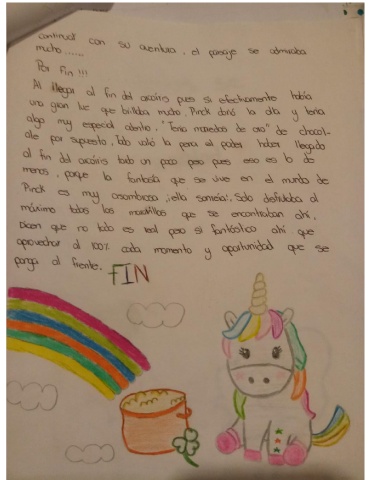 continuar con su aventura, el paisaje se admiraba
mucho......
Por fin !!!
Al llegar al fin del arcoiris pues si efectivamente había
una gran luz que brillaba mucho, Pinck abrió la olla y tenía
algo muy especial adentro. "Tenia monedas de oro" de chocola-
te por supuesto, todo valió la pena al poder haber llegado
al fin del arcoiris tardo un poco pero pues eso es lo de
menos, porque la fantasía que se vive en el mundo de
Pinck es muy asombrosa ¡ella sonreía!. Solo disfrutaba al
máximo todas las maravillas que se encontraban ahí,
Dicen que no todo es real pero si fantástico ahí que
aprovechar al 100% cada momento y oportunidad que se
ponga al frente. FIN